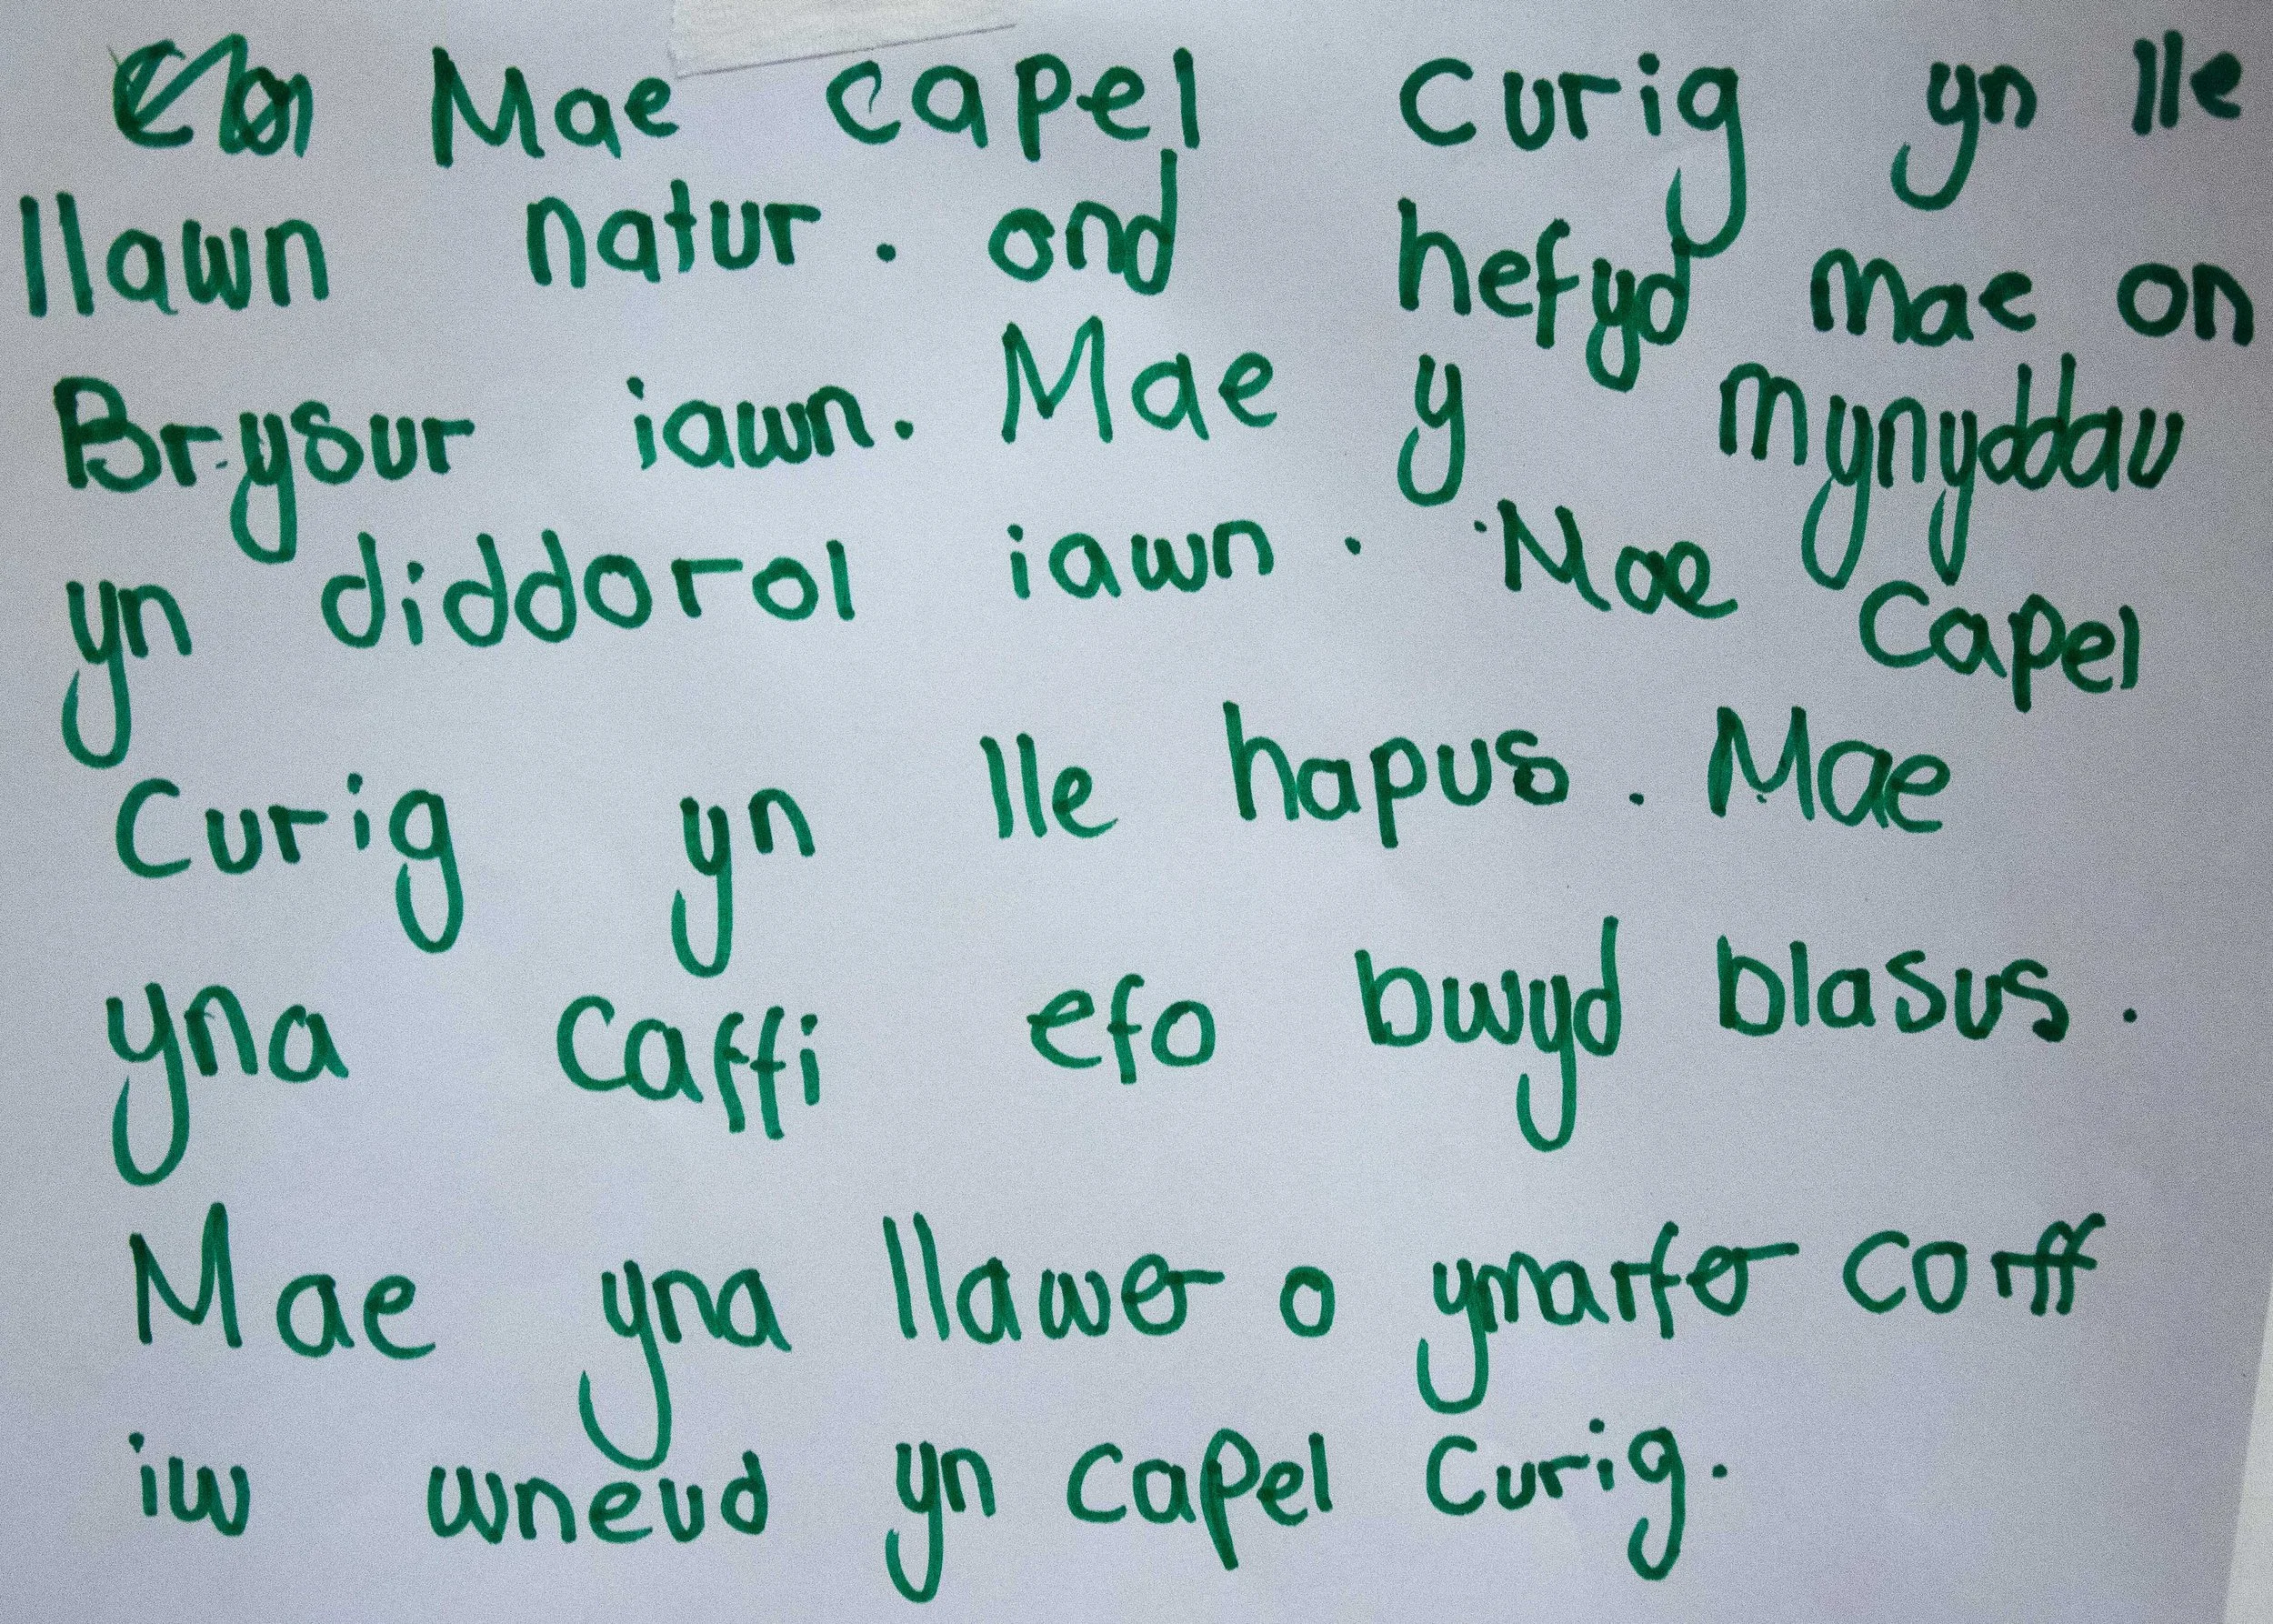 Mae capel curig yn lle
llawn natur. ond hefyd mae on
Brysur iawn. Mae y mynyddau
yn diddorol iawn. Mae Capel
Curig yn lle hapus. Mae
yna Caffi efo bwyd blasus.
Mae yna llawer o ymarfer corff
iw wneud yn capel Curig.